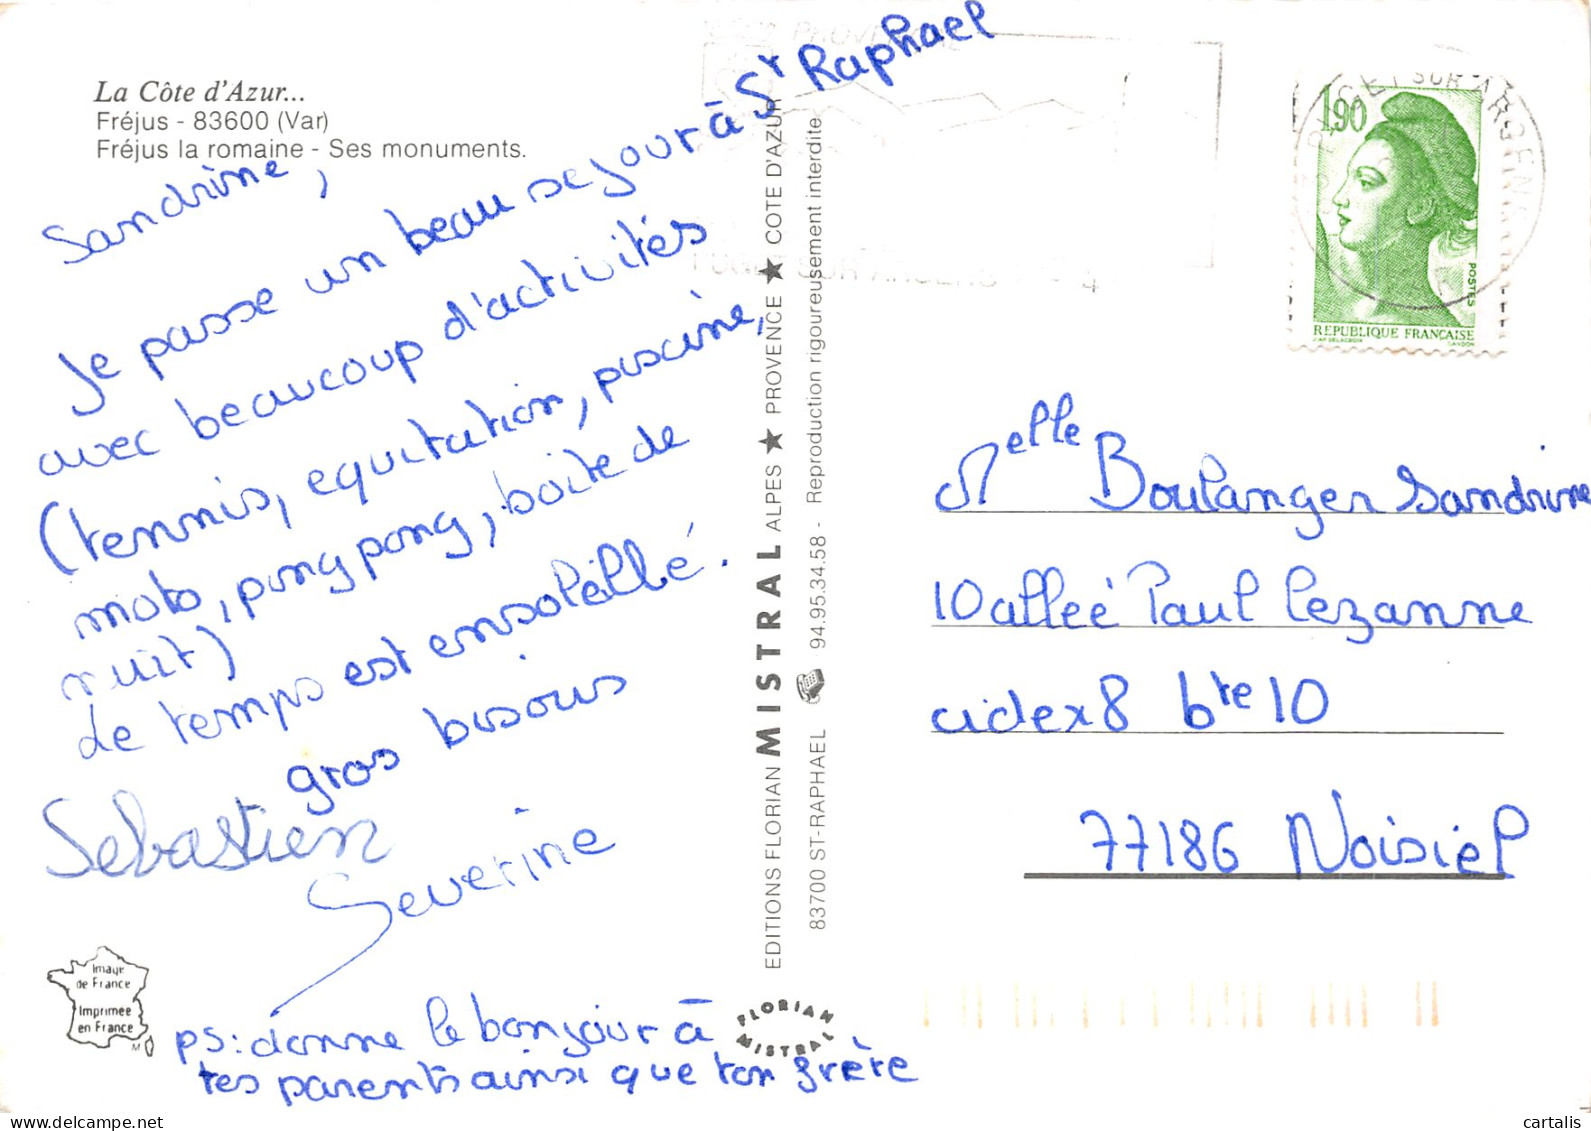 La Côte d'Azur...
Fréjus - 83600 (Var)
Fréjus la romaine - Ses monuments.
Sandrine,
Je passe un beau sejour à St Raphael
avec beaucoup d'activités
(tennis, equitation, piscine,
moto, ping pong, boite de
nuit)
Le temps est ensoleillé.
gros bisous
Sebastien
Severine
ps: donne le bonjour à
tes parents ainsi que ton frère
Image
de France
Imprimée
en France
M
FLORIAN
MISTRAL
EDITIONS FLORIAN MISTRAL ALPES ★ PROVENCE ★ COTE D'AZUR
83700 ST-RAPHAEL 94.95.34.58 - Reproduction rigoureusement interdite
1,90
POSTES
REPUBLIQUE FRANÇAISE
D'AP. DELACROIX GANDON
SUR ARGENS
Melle Boulanger Sandrine
10 allée Paul Cezanne
cidex 8 bte 10
77186 Noisiel
cartalis.com